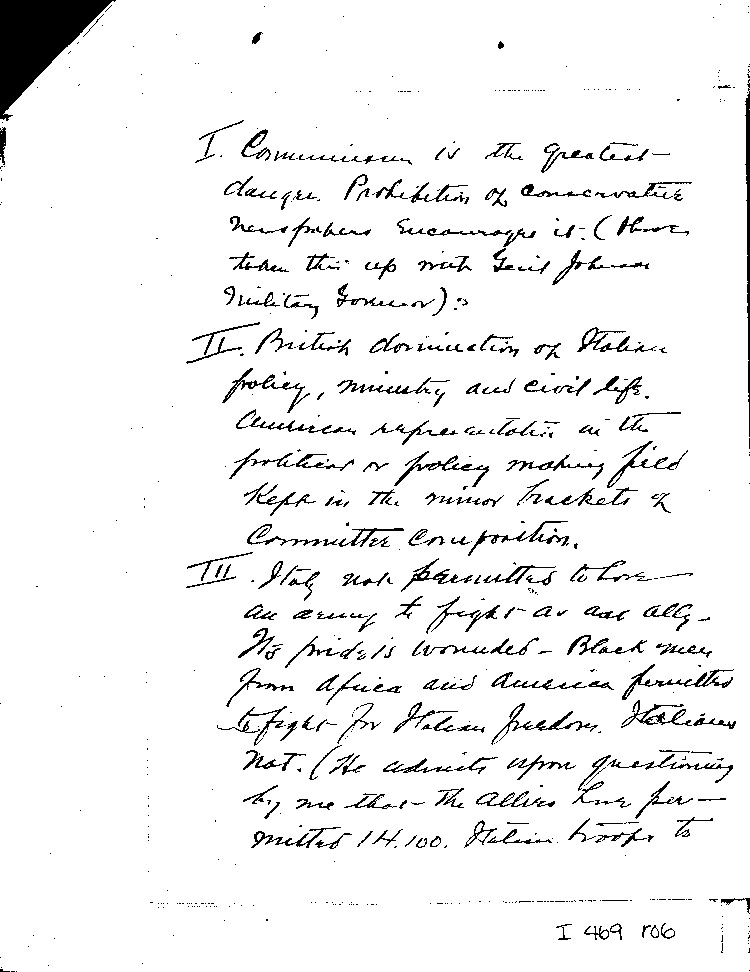 I. Communism is the greatest
danger. Prohibition of conservative
newspapers encourages it. (Have
taken this up with Genl Johnson
Military Governor).
II. British domination of Italian
policy, ministry and civil life.
American representation in the
political or policy making field
kept in the minor brackets of
Committee composition.
III. Italy not permitted to have
an army to fight as an ally.
Its pride is wounded - Black men
from Africa and America permitted
to fight for Italian freedom. Italians
not. (He admits upon questioning
by me that the Allies have per-
mitted 14.100. Italian troops to
I 469 r06